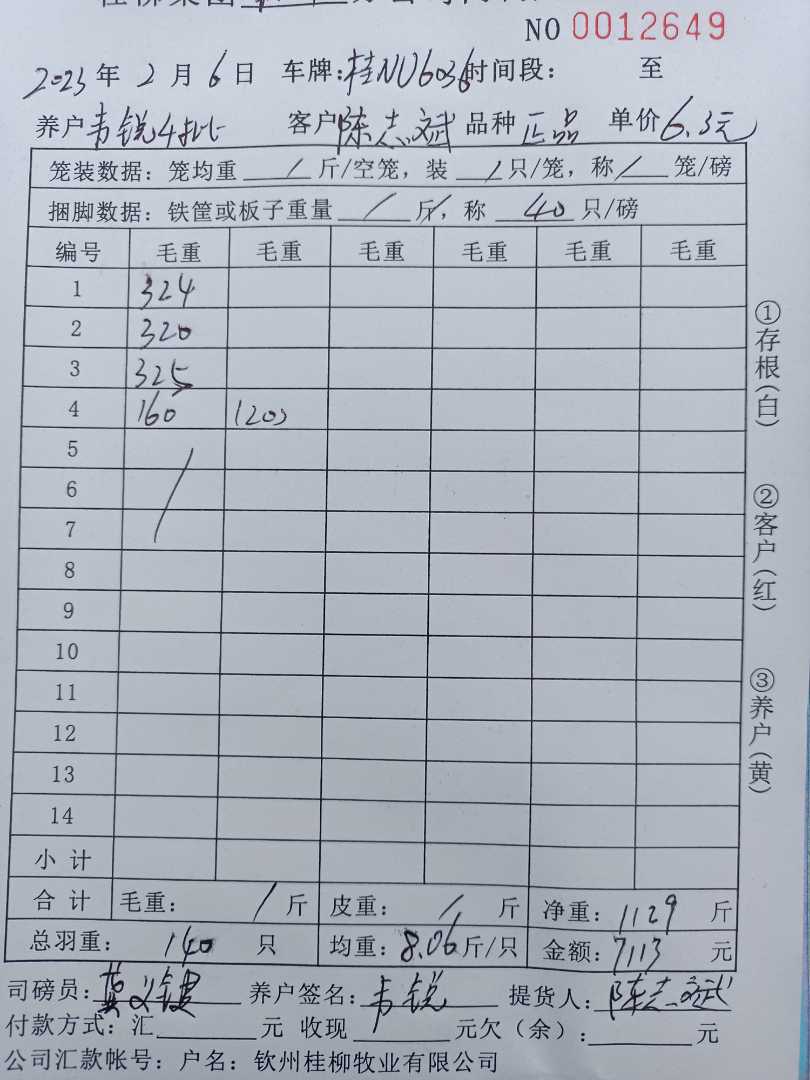 NO 0012649
2023年2月6日 车牌:桂NU6036时间段: 至
养户韦锐4批 客户陈志斌 品种正品 单价6.3元
笼装数据:笼均重 / 斤/空笼,装 / 只/笼,称 / 笼/磅
捆脚数据:铁筐或板子重量 / 斤,称 40 只/磅
编号 毛重 毛重 毛重 毛重 毛重 毛重
1 324
2 320
3 325
4 160 (20)
5
6
7
8
9
10
11
12
13
14
小计
合计 毛重: / 斤 皮重: / 斤 净重:1129 斤
总羽重: 140 只 均重:8.06斤/只 金额:7113 元
司磅员: 养户签名:韦锐 提货人:陈志斌
付款方式:汇 元 收现 元欠(余): 元
公司汇款帐号:户名:钦州桂柳牧业有限公司
①存根(白)
②客户(红)
③养户(黄)